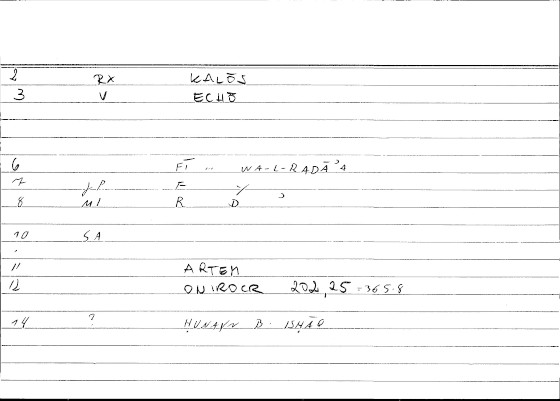 2 RX KALŌS
3 V ECHŌ
6 FĪ .. WA-L-RADĀ'A
7 F
8 MI R D
10 SA
11 ARTEM
12 ONIROCR 202,25 = 365.8
14 ? ḤUNAYN B. ISḤĀQ